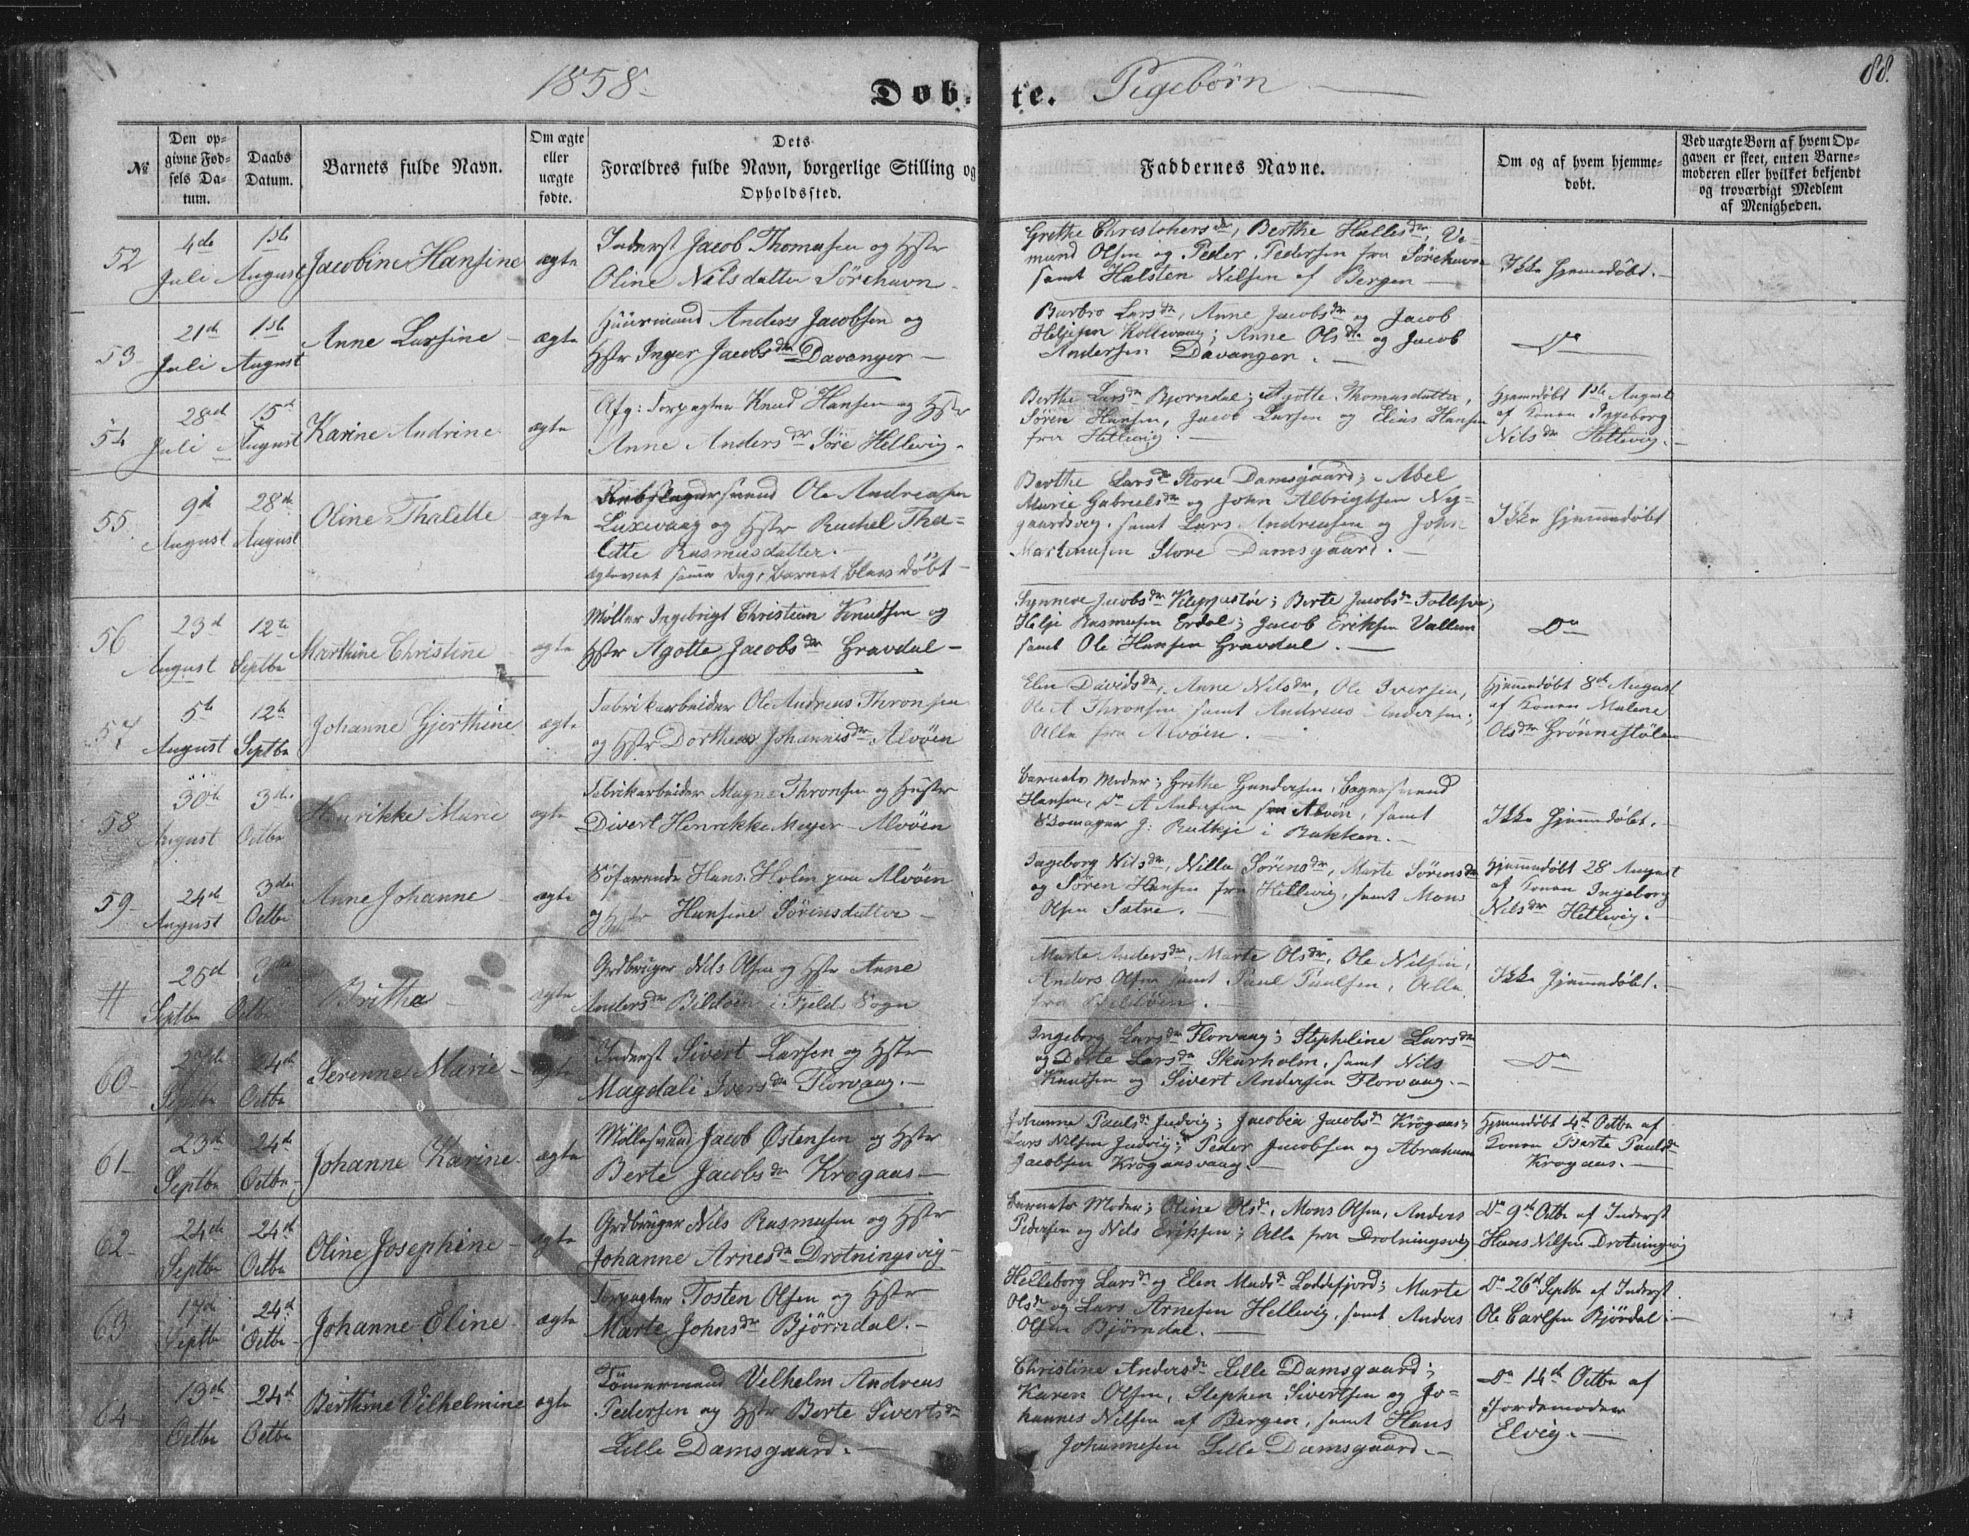 1858
Dob-te. Pigebörn
88.
№
Den opgivne Fødsels Datum.
Daabs Datum.
Barnets fulde Navn.
Om ægte eller uægte fødte.
Dets Forældres fulde Navn, borgerlige Stilling og Opholdssted.
Faddernes Navne.
Om og af hvem hjemmedobt.
Ved uægte Børn af hvem Opgaven er skeet, enten Barnemoderen eller hvilket bekjendt og troværdigt Medlem af Menigheden.
52
4de Juli
1ste August
Jacobine Hansine
ægte
Inderst Jacob Thomasen og Hstr
Oline Nilsdatter Sörehavn
Grethe Christophersdr, Berthe Hallesdr, Ve-
mund Olsen og Peder Pedersen fra Sörehavn
samt Halsten Nilsen af Bergen
Ikke hjemmedöbt.
53
21de Juli
1ste August
Anne Larsine
ægte
Huusmand Anders Jacobsen og
Hstr Inger Jacobsdr Davanger
Barbro Larsdr, Anne Jacobsdr og Jacob
Helgesen Kollevaag; Anne Olsdr og Jacob
Andersen Davanger.
Do
54
28de Juli
15de August
Karine Andrine
ægte
Afg: Forpagter Knud Hansen og Hstr
Anne Andersdr Söre Hellevig
Berthe Larsdr Bjorndal; Agotte Thomasdatter,
Sören Hansen, Jacob Larsen og Elias Hansen
fra Hellevig.
Hjemmedöbt 1ste August
af Konen Ingeborg
Nilsdr Hellevig.
55.
9de August
28de August
Oline Thalette
ægte
Rebslagersvend Ole Andreasen
Laxevaag og Hstr Rachel Tha-
lette Rasmusdatter.
ægteviet samme Dag, barnet blev döbt
Berthe Larsdr Store Damsgaard; Abel
Marie Gabrielsdr og John Albrigtsen Ny-
gaardsvig, samt Lars Andreasen og John
Martinusen Store Damsgaard.
Ikke hjemmedöbt
56
23d August
12te Septbr
Marthine Christine
ægte
Møller Ingebrigt Christian Knudsen og
Hstr Agotte Jacobsdr Gravdal
Synneve Jacobsdr; Berte Jacobsdr
Helje Rasmusen Erdal; Jacob Eriksen Vallem
samt Ole Hansen Gravdal.
Do
57
5te August
12te Septbr
Johanne Gjerthine
ægte
Fabrikarbeider Ole Andreas Thronsen
og Hstr Dorthea Johannesdr Alvöen
Elen Davidsdr, Anne Nilsdr, Ole Iversen,
Ole A Thronsen samt Andreas Andersen;
Alle fra Alvöen.
Hjemmedöbt 8de August
af Konen Malene
Olsdr Grönnestölen
58
30te August
3die Octbr
Henrikke Marie
ægte
Fabrikarbeider Magne Thronsen og Hustr
Divert Henrikke Meyer Alvöen
Barnets Moder; Grethe Gundersen, Bagersvend
Hansen, Do A Andersen fra Alvöen, samt
Skomager J: Rutkje i Bakken.
Ikke hjemmedöbt.
59
24de August
3die Octbr
Anne Johanne
ægte
Söfarende Hans Holm paa Alvöen
og Hstr Hansine Sörensdatter
Ingeborg Nilsdr, Nille Sörensdr, Marte Sörensdr
og Sören Hansen fra Hellevig, samt Mons
Olsen Sætre.
Hjemmedöbt 28 August
af Konen Ingeborg
Nilsdr Hellevig.
#
25d Septbr
3die Octbr
Britha
ægte
Grdbruger Nils Olsen og Hstr Anne
Andersdr Bildöen i Fjeld Sogn
Marte Andersdr, Marte Olsdr, Ole Nilsen,
Anders Olsen samt Paul Paulsen, Alle
fra Bildöen.
Ikke hjemmedöbt.
60
Septbr
24de Octbr
Serenne Marie
ægte
Inderst Sivert Larsen og Hstr
Magdali Iversdr Florvaag.
Ingeborg Larsdr Florvaag; Stepheline Larsdr
og Dorte Larsdr Skarholm, samt Nils
Knutsen og Sivert Andersen Florvaag.
Do
61
23de Septbr
24de Octbr
Johanne Karine
ægte
Møllesvend Jacob Østensen og Hstr
Berte Jacobsdr Krogaas
Johanne Paulsdr Judvig; Jacobia Jacobsdr Krogaas;
Lars Nilsen Judvig; Peder Jacobsen og Abraham
Jacobsen Krogaasvaag.
Hjemmedöbt 4de Octbr af
Konen Berte Paulsdr
Krogaas.
62
24de Septbr
24de Octbr
Oline Josephine
ægte
Grdbruger Nils Rasmusen og Hstr
Johanne Arnesdr Drotningsvig
Barnets Moder; Oline Olsdr, Mons Olsen, Anders
Pedersen og Nils Eriksen; Alle fra Drotningsvig
Do 9de Octbr af Inderst
Hans Nilsen Drotningsvig
63
17de Septbr
24de Octbr
Johanne Eline
ægte
Forpagter Tosten Olsen og Hstr
Marte Johnsdr Bjørndal.
Helleborg Larsdr og Elen Madsdr Loddefjord; Marte
Olsdr og Lars Arnesen Hellevig, samt Anders
Olsen Bjørndal.
Do 26de Septbr af Inderst
Ole Carlsen Björdal
64
13de Octbr
24de Octbr
Berthine Vilhelmine
ægte
Tömmermand Vilhelm Andreas
Pedersen og Hstr Berte Sivertsdr
Lille Damsgaard.
Christine Andersdr Lille Damsgaard;
Karen Olsen, Stephen Sivertsen og Jo-
hannes Nilsen af Bergen, samt Hans
Johannesen Lille Damsgaard.
Do 14de Octbr af
Jordemoder
Elvig.